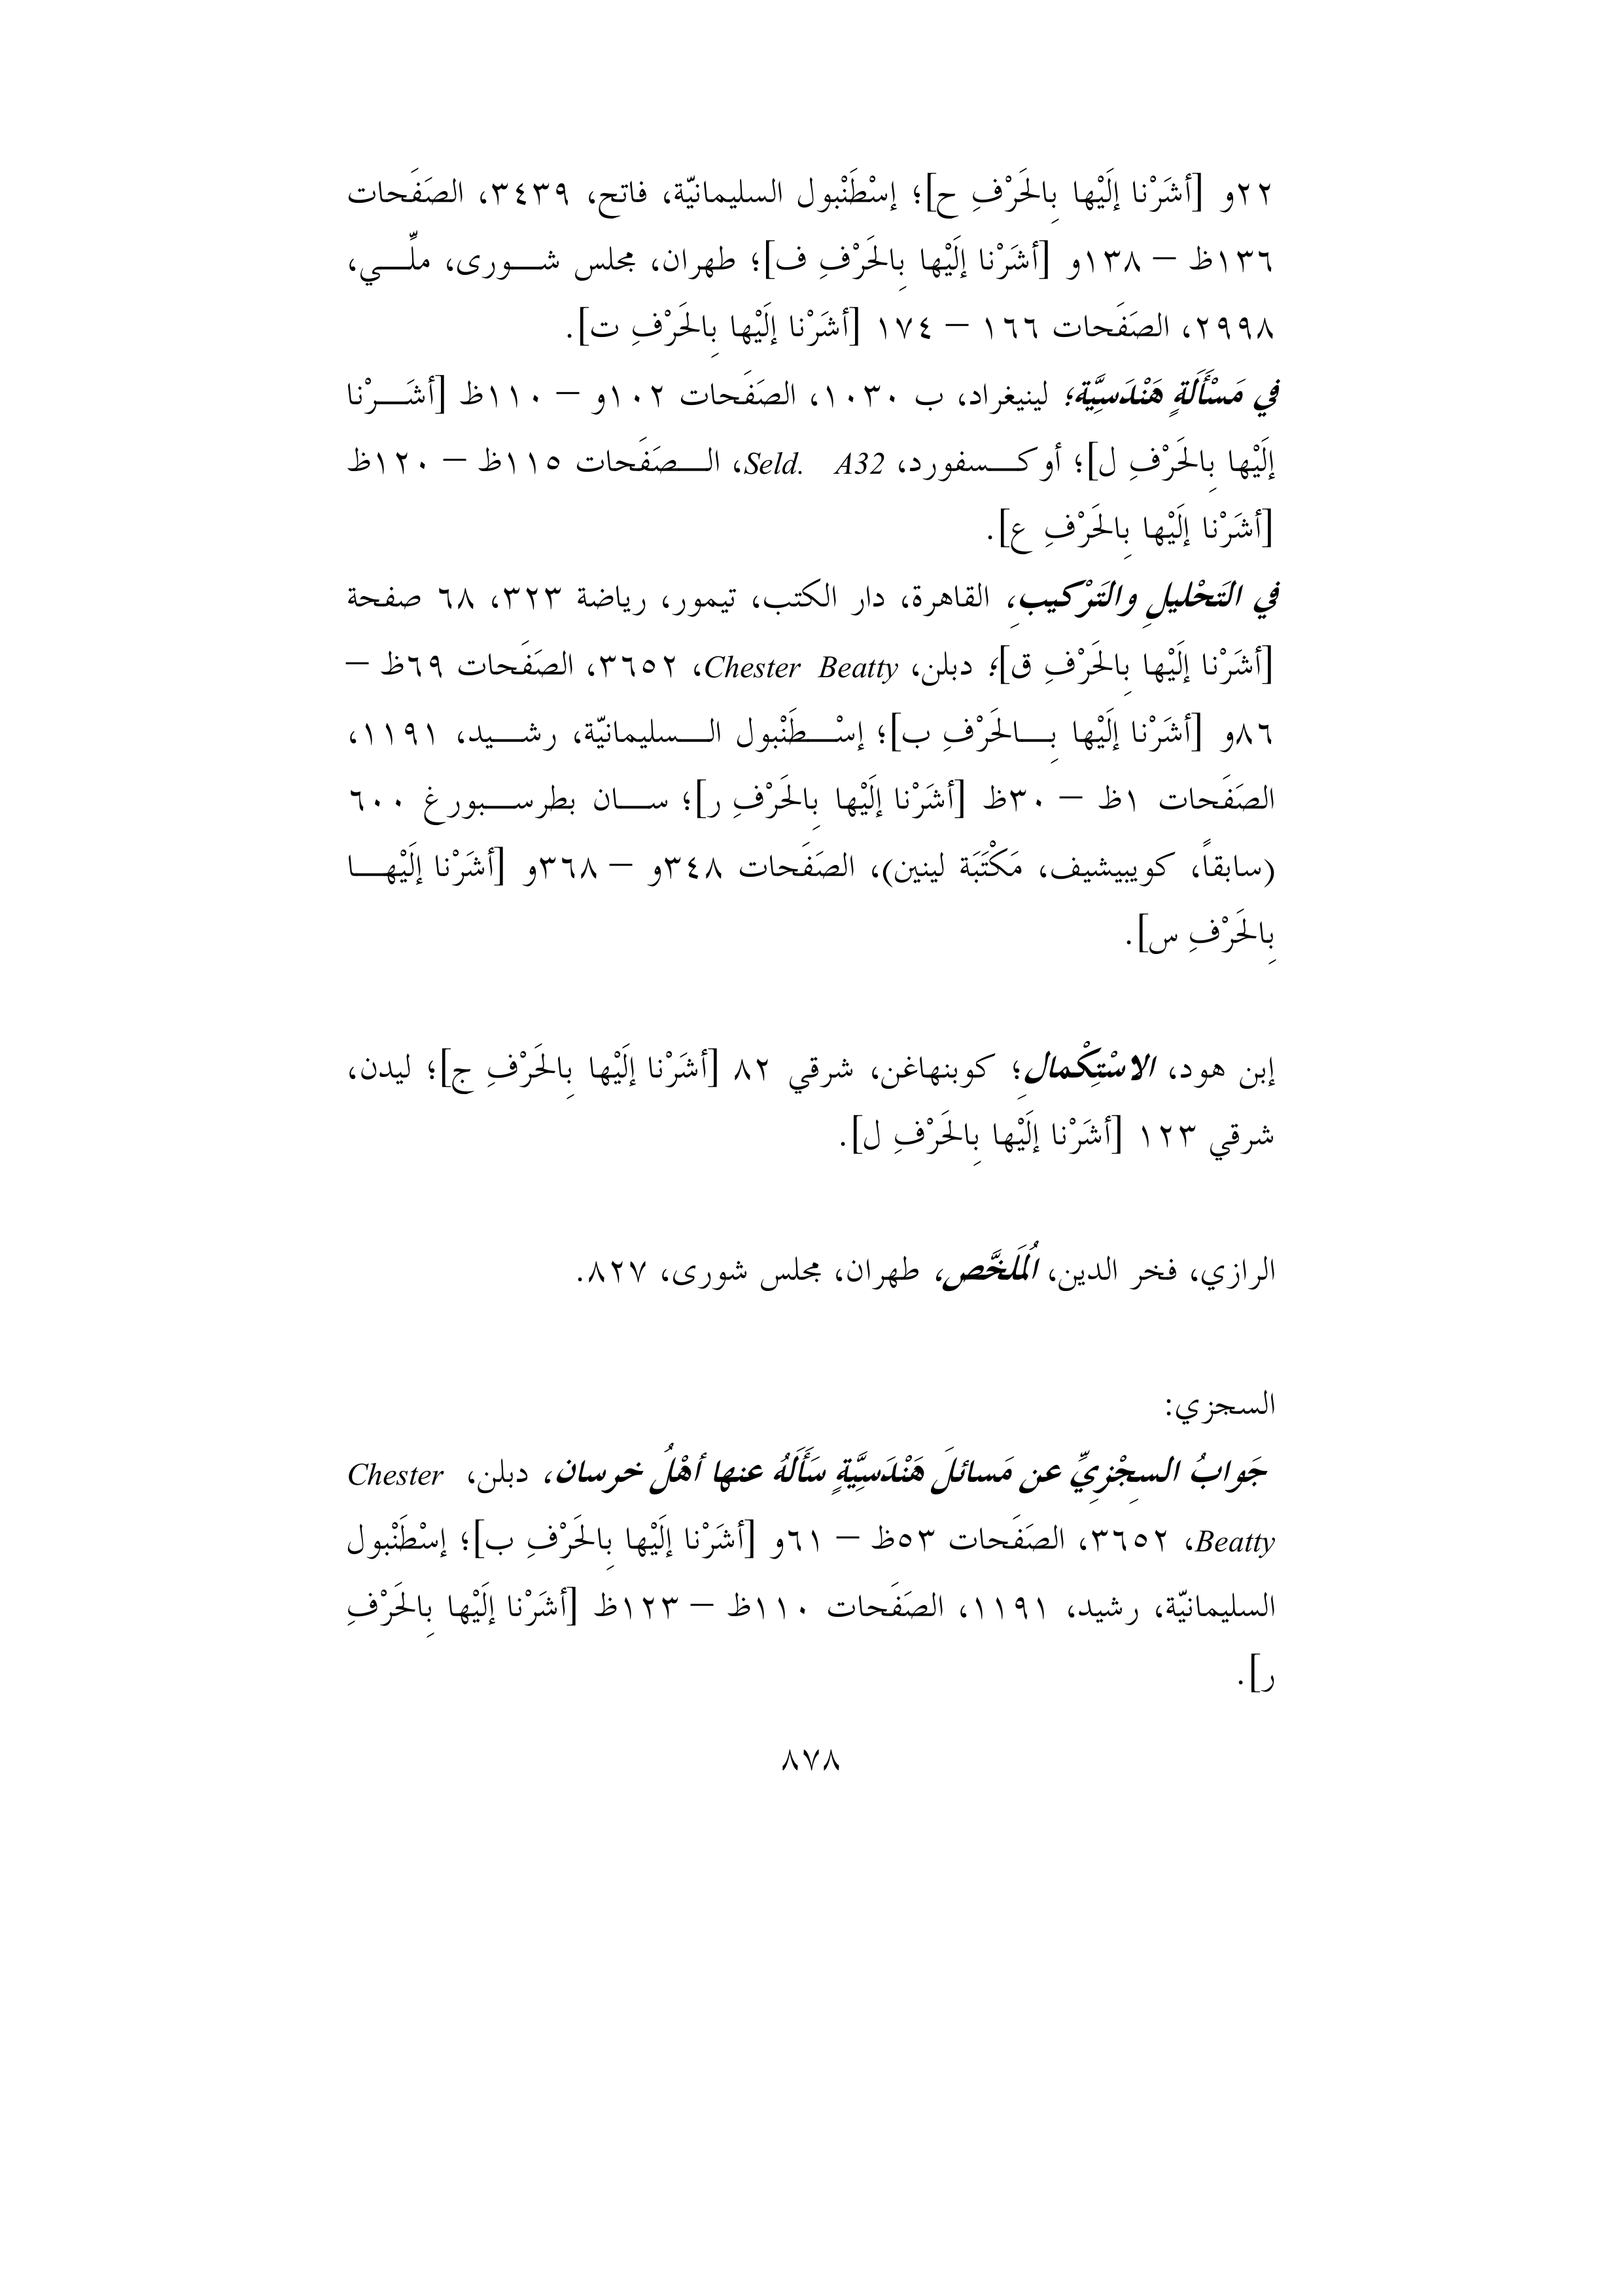 ٢٢و [أشَرْنا إلَيْها بِالحَرْفِ ح]؛ إسْطَنْبول السليمانيّة، فاتح، ٣٤٣٩، الصَفَحات
١٣٦ظ – ١٣٨و [أشَرْنا إلَيْها بِالحَرْفِ ف]؛ طهران، مجلس شـــورى، ملّـــي،
٢٩٩٨، الصَفَحات ١٦٦ – ١٧٤ [أشَرْنا إلَيْها بِالحَرْفِ ت].
في مَسْأَلَةٍ هَنْدَسِيَّة؛ لينيغراد، ب ١٠٣٠، الصَفَحات ١٠٢و – ١١٠ظ [أشَـــرْنا
إلَيْها بِالحَرْفِ ل]؛ أوكـــسفورد، Seld. A32، الـــصَفَحات ١١٥ظ – ١٢٠ظ
[أشَرْنا إلَيْها بِالحَرْفِ ع].
في التَحْليلِ والتَرْكيبِ، القاهرة، دار الكتب، تيمور، رياضة ٣٢٣، ٦٨ صفحة
[أشَرْنا إلَيْها بِالحَرْفِ ق]؛ دبلن، Chester Beatty، ٣٦٥٢، الصَفَحات ٦٩ظ –
٨٦و [أشَرْنا إلَيْها بِـــالحَرْفِ ب]؛ إسْـــطَنْبول الـــسليمانيّة، رشـــيد، ١١٩١،
الصَفَحات ١ظ – ٣٠ظ [أشَرْنا إلَيْها بِالحَرْفِ ر]؛ ســـان بطرســـبورغ ٦٠٠
(سابقاً، كويبيشيف، مَكْتَبَة لينين)، الصَفَحات ٣٤٨و – ٣٦٨و [أشَرْنا إلَيْهـــا
بِالحَرْفِ س].
إبن هود، الاسْتِكْمالِ؛ كوبنهاغن، شرقي ٨٢ [أشَرْنا إلَيْها بِالحَرْفِ ج]؛ ليدن،
شرقي ١٢٣ [أشَرْنا إلَيْها بِالحَرْفِ ل].
الرازي، فخر الدين، المُلَخَّص، طهران، مجلس شورى، ٨٢٧.
السجزي:
جَوابُ السِجْزِيِّ عن مَسائلَ هَنْدَسِيَّةٍ سَأَلَهُ عنها أهْلُ خرسان، دبلن، Chester
Beatty، ٣٦٥٢، الصَفَحات ٥٣ظ – ٦١و [أشَرْنا إلَيْها بِالحَرْفِ ب]؛ إسْطَنْبول
السليمانيّة، رشيد، ١١٩١، الصَفَحات ١١٠ظ – ١٢٣ظ [أشَرْنا إلَيْها بِالحَرْفِ
ر].
٨٧٨